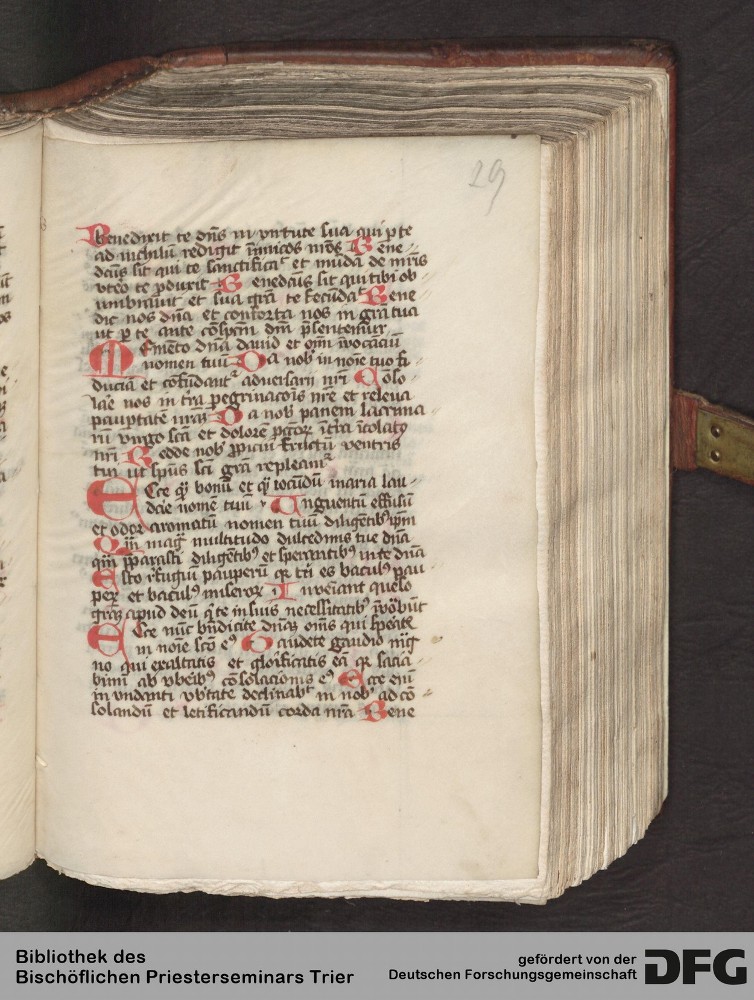 29
Benedixit te dn̄s in virtute sua qui p te
ad nichilū redigit īimicos nr̄os Bene
dctūs sit qui te sanctificat et mūda de mr̄is
vtēo te ꝓduxit Benedctūs sit qui tibi ob
umbrauit et sua grā te fecūdat Bene
dic nos dn̄a et conforta nos in grā tua
ut p te ante cōspectū dn̄i p̄sentemur
Memēto dn̄a dauid et om̄i īuocaciū
nomen tuū Da nob in noīe tuo fi
duciā et cōfūdantr aduersarij nr̄i Cōso
lare nos in tr̄a peregrinacōis nr̄e et releua
paupertatē nr̄aꝫ Da nob panem lacrima
rū virgo scā et dolorē pctōꝝ ī tr̄a īcolatꝰ
nr̄i Redde nob ꝓpiciū fructū ventris
tui ut spūs sci grā repleamr
Ecce qꝫ bonū et qꝫ iocūdū maria lau
dare nomē tuū Unguentū effusū
et odor aromatū nomen tuū diligētibꝰ ip̄m
Qm̄ magͣ multitudo dulcedinis tue dn̄a
qm̄ p̄parasti diligētibꝰ et sperātibꝰ in te dn̄a
Esto refugiū pauperū qꝛ tu es baculꝰ pau
peꝝ et baculꝰ miseroꝝ Inueiant queso
grāꝫ apud deū q̄ te in suis necessitatibꝰ īuocabūt
Ecce nūc bn̄dicite dn̄aꝫ om̄s qui speatis
in noīe scō eꝰ Gaudete gaudio mͣg
no qui exaltatis et glorificatis eā qꝛ sacia
bimī ab vbeibꝰ cōsolacionis eꝰ Ecce em̄
in vndanti vbertate declinabit in nob ad cō
solandū et letificandū corda nr̄a Bene
Bibliothek des
Bischöflichen Priesterseminars Trier
gefördert von der
Deutschen Forschungsgemeinschaft
DFG